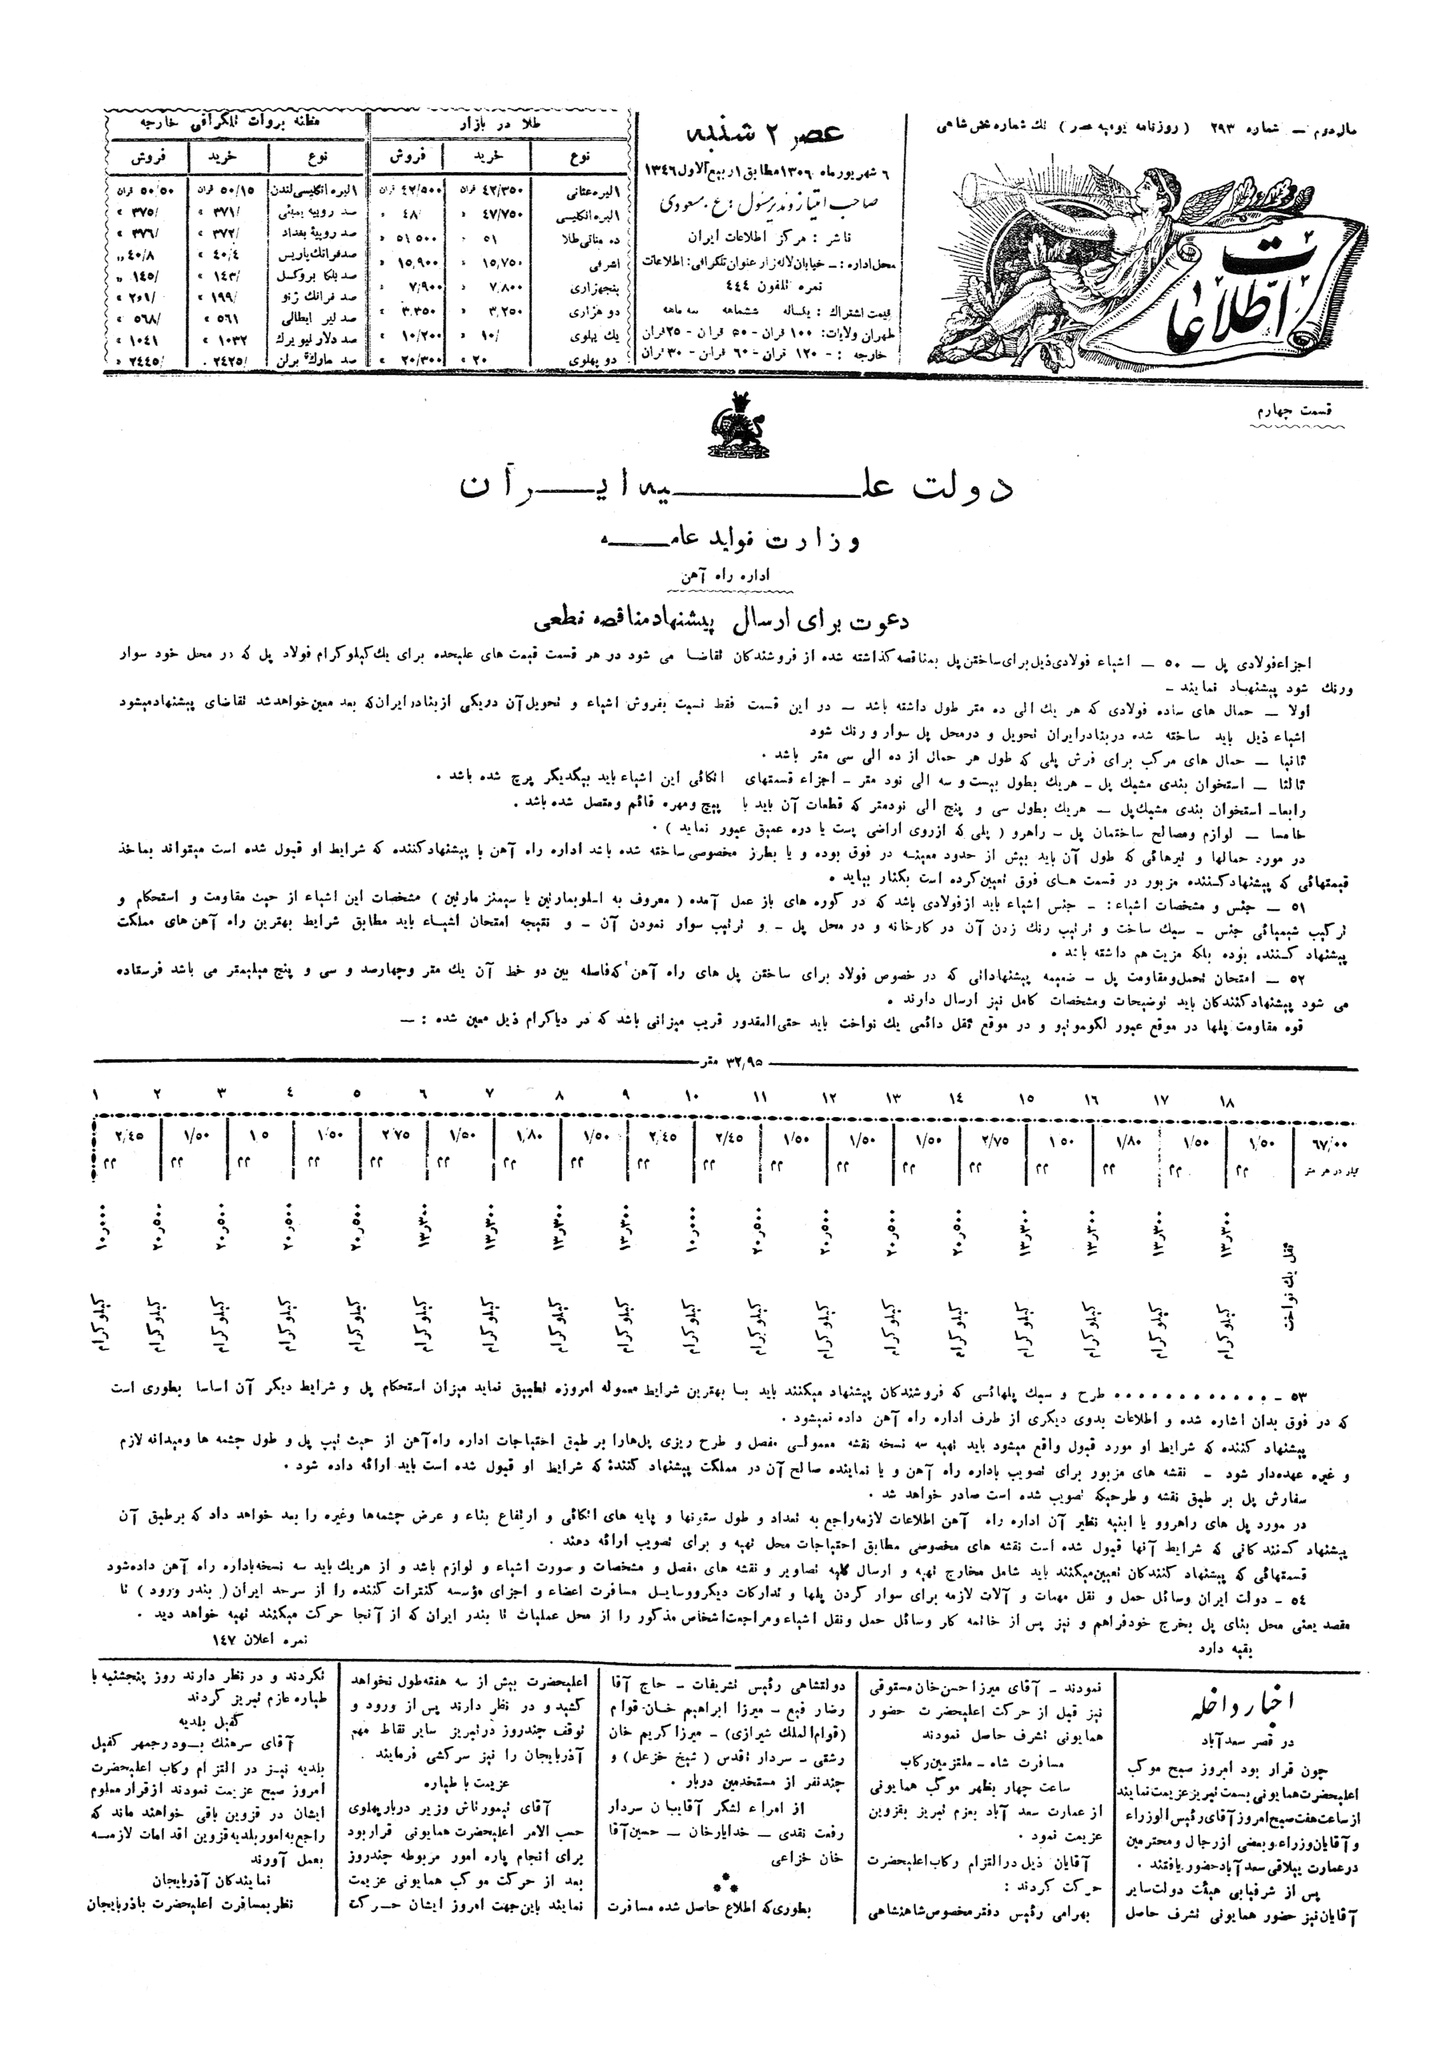 سال دوم — شماره ۲۹۳ ( روزنامه یومیه عصر ) تك شماره شش شاهی
اطلاعات
عصر ۲ شنبه
۶ شهریور ماه ۱۳۰۶ مطابق ۱ ربیع الاول ۱۳۴۶
صاحب امتیاز و مدیر مسئول : ع . مسعودی
ناشر : مرکز اطلاعات ایران
محل اداره : — خیابان لاله زار عنوان تلگرافی : اطلاعات
نمره تلفون ۴۴۴
قیمت اشتراك : یکساله ششماهه سه ماهه
طهران ولایات : ۱۰۰ قران - ۵۰ قران - ۲۵ قران
خارجه : - ۱۲۰ قران - ۶۰ قران - ۳۰ قران
طلا در بازار
نوع خرید فروش
۱ لیره عثمانی ۴۲/۳۵۰ قران ۴۲/۵۰۰ قران
۱ لیره انگلیسی ۴۷/۷۵۰ » ۴۸/ »
ده مناتی طلا ۵۱ » ۵۱ ۵۰۰ »
اشرفی ۱۵,۷۵۰ » ۱۵,۹۰۰ »
پنجهزاری ۷,۸۰۰ » ۷,۹۰۰ »
دو هزاری ۳,۲۵۰ » ۳,۳۵۰ »
یك پهلوی ۱۰/ » ۱۰/۲۰۰ »
دو پهلوی ۲۰ » ۲۰/۳۰۰ »
مظنه بروات تلگرافی خارجه
نوع خرید فروش
۱ لیره انگلیسی لندن ۵۰/۱۵ قران ۵۰/۵۰ قران
صد روپیه بمبئی ۳۷۱/ » ۳۷۵/ »
صد روپیهٔ بغداد ۳۷۲/ » ۳۷۶/ »
صد فرانك پاریس ۴۰/۴ » ۴۰/۸ „
صد بلگا بروکسل ۱۴۳/ » ۱۴۵/ »
صد فرانك ژنو ۱۹۹/ » ۲۰۱/ »
صد لیر ایطالی ۵۶۱ » ۵۶۸/ »
صد دلار نیویرك ۱۰۳۲ » ۱۰۴۱ »
صد مارك برلن ۲۴۲۵/ . ۲۴۴۵/ »
قسمت چهارم
دولت علیه ایران
وزارت فواید عامه
اداره راه آهن
دعوت برای ارسال پیشنهاد مناقصه قطعی
اجزاء فولادی پل — ۵۰ — اشیاء فولادی ذیل برای ساختن پل بمناقصه گذاشته شده از فروشندگان تقاضا می شود در هر قسمت قیمت های علیحده برای یك کیلو گرام فولاد پل که در محل خود سوار
و رنك شود پیشنهاد نمایند —
اولا — حمال های ساده فولادی که هر یك الی ده متر طول داشته باشد — در این قسمت فقط نسبت بفروش اشیاء و تحویل آن در یکی از بنادر ایران که بعد معین خواهد شد تقاضای پیشنهاد میشود
اشیاء ذیل باید ساخته شده در بنادر ایران تحویل و در محل پل سوار و رنك شود
ثانیا — حمال های مرکب برای فرش پلی که طول هر حمال از ده الی سی متر باشد .
ثالثا — استخوان بندی مشبك پل - هریك بطول بیست و سه الی نود متر - اجزاء قسمتهای اتکائی این اشیاء باید بیکدیگر پرچ شده باشد .
رابعا - استخوان بندی مشبك پل — هریك بطول سی و پنج الی نود متر که قطعات آن باید با پیچ و مهره قائم و متصل شده باشد .
خامسا — لوازم و مصالح ساختمان پل - راهرو ( پلی که از روی اراضی پست یا دره عمیق عبور نماید ) .
در مورد حمالها و تیرهائی که طول آن باید بیش از حدود معینه در فوق بوده و یا بطرز مخصوصی ساخته شده باشد اداره راه آهن با پیشنهاد کننده که شرایط او قبول شده است میتواند بماخذ
قیمتهائی که پیشنهاد کننده مزبور در قسمت های فوق تعیین کرده است بکنار بیاید .
۵۱ — جنس و مشخصات اشیاء : - جنس اشیاء باید از فولادی باشد که در کوره های باز عمل آمده ( معروف به اسلوب مارتین یا سیمنز مارتین ) مشخصات این اشیاء از حیث مقاومت و استحکام و
ترکیب شیمیائی جنس - سبك ساخت و ترتیب رنك زدن آن در کارخانه و در محل پل - و ترتیب سوار نمودن آن - و نتیجه امتحان اشیاء باید مطابق شرایط بهترین راه آهن های مملکت
پیشنهاد کننده بوده بلکه مزیت هم داشته باشد .
۵۲ — امتحان تحمل و مقاومت پل - ضمیمه پیشنهاداتی که در خصوص فولاد برای ساختن پل های راه آهن که فاصله بین دو خط آن یك متر و چهارصد و سی و پنج میلیمتر می باشد فرستاده
می شود پیشنهاد کنندگان باید توضیحات و مشخصات کامل نیز ارسال دارند .
قوه مقاومت پلها در موقع عبور لکوموتیو و در موقع ثقل دائمی یك نواخت باید حتی المقدور قریب میزانی باشد که در دیاگرام ذیل معین شده : —
۳۲,۹۵ متر
۱ ۲ ۳ ۴ ۵ ۶ ۷ ۸ ۹ ۱۰ ۱۱ ۱۲ ۱۳ ۱۴ ۱۵ ۱۶ ۱۷ ۱۸
۲/۴۵ ۱/۵۰ ۱ ۵ ۱/۵۰ ۲ ۷۵ ۱/۵۰ ۱,۸۰ ۱/۵۰ ۲,۴۵ ۲/۴۵ ۱/۵۰ ۱/۵۰ ۱/۵۰ ۲/۷۵ ۱ ۵۰ ۱/۸۰ ۱/۵۰ ۱,۵۰ ۶۷,۰۰
کیلو در هر متر
۱۰,۰۰۰ ۲۰,۵۰۰ ۲۰,۵۰۰ ۲۰,۵۰۰ ۲۰,۵۰۰ ۱۳,۳۰۰ ۱۳,۳۰۰ ۱۳,۳۰۰ ۱۳,۳۰۰ ۱۰,۰۰۰ ۲۰,۵۰۰ ۲۰,۵۰۰ ۲۰,۵۰۰ ۲۰,۵۰۰ ۱۳,۳۰۰ ۱۳,۳۰۰ ۱۳,۳۰۰ ۱۳,۳۰۰
کیلو گرام کیلو گرام کیلو گرام کیلو گرام کیلو گرام کیلو گرام کیلو گرام کیلو گرام کیلو گرام کیلو گرام کیلو گرام کیلو گرام کیلو گرام کیلو گرام کیلو گرام کیلو گرام کیلو گرام کیلو گرام
ثقل یك نواخت
۵۳ - . . . . . . . . . . . . طرح و سبك پلهائی که فروشندگان پیشنهاد میکنند باید با بهترین شرایط معموله امروزه تطبیق نماید میزان استحکام پل و شرایط دیگر آن اساسا بطوری است
که در فوق بدان اشاره شده و اطلاعات بدوی دیگری از طرف اداره راه آهن داده نمیشود .
پیشنهاد کننده که شرایط او مورد قبول واقع میشود باید تهیه سه نسخه نقشه معمولی مفصل و طرح ریزی پل ها را بر طبق احتیاجات اداره راه آهن از حیث تیپ پل و طول چشمه ها و میدانه لازم
و غیره عهده دار شود - نقشه های مزبور برای تصویب باداره راه آهن و یا نماینده صالح آن در مملکت پیشنهاد کنندهٔ که شرایط او قبول شده است باید ارائه داده شود .
سفارش پل بر طبق نقشه و طرحیکه تصویب شده است صادر خواهد شد .
در مورد پل های راهرو و یا ابنیه نظیر آن اداره راه آهن اطلاعات لازمه راجع به تعداد و طول ستونها و پایه های اتکائی و ارتفاع بناء و عرض چشمه ها و غیره را بعد خواهد داد که بر طبق آن
پیشنهاد کنندکانی که شرایط آنها قبول شده است نقشه های مخصوصی مطابق احتیاجات محل تهیه و برای تصویب ارائه دهند .
قسمتهائی که پیشنهاد کنندکان تعیین میکنند باید شامل مخارج تهیه و ارسال کلیه تصاویر و نقشه های مفصل و مشخصات و صورت اشیاء و لوازم باشد و از هریك باید سه نسخه باداره راه آهن داده شود
۵۴ - دولت ایران وسائل حمل و نقل مهمات و آلات لازمه برای سوار کردن پلها و تدارکات دیگر و وسایل مسافرت اعضاء و اجزای مؤسسه کنترات کننده را از سرحد ایران ( بندر ورود ) تا
مقصد یعنی محل بنای پل بخرج خود فراهم و نیز پس از خاتمه کار وسائل حمل و نقل اشیاء و مراجعت اشخاص مذکور را از محل عملیات تا بندر ایران که از آنجا حرکت میکنند تهیه خواهد دید .
بقیه دارد نمره اعلان ۱۴۷
اخبار داخله
در قصر سعد آباد
چون قرار بود امروز صبح موکب
اعلیحضرت همایونی بسمت تبریز عزیمت نمایند
از ساعت هفت صبح امروز آقای رئیس الوزراء
و آقایان وزراء و بعضی از رجال و محترمین
در عمارت ییلاقی سعد آباد حضور یافتند .
پس از شرفیابی هیئت دولت سایر
آقایان نیز حضور همایونی تشرف حاصل
نمودند - آقای میرزا حسن خان مستوفی
نیز قبل از حرکت اعلیحضرت حضور
همایونی تشرف حاصل نمودند
مسافرت شاه - ملتزمین رکاب
ساعت چهار بظهر موکب همایونی
از عمارت سعد آباد بعزم تبریز بقزوین
عزیمت نمود .
آقایان ذیل در التزام رکاب اعلیحضرت
حرکت کردند :
بهرامی رئیس دفتر مخصوص شاهنشاهی
دولتشاهی رئیس تشریفات - حاج آقا
رضار فیع - میرزا ابراهیم خان قوام
(قوام الملك شیرازی) - میرزا کریم خان
رشتی - سردار اقدس ( شیخ خزعل ) و
چند نفر از مستخدمین دربار .
از امراء لشکر آقایان سردار
رفعت نقدی - خدایارخان - حسین آقا
خان خزاعی
بطوری که اطلاع حاصل شده مسافرت
اعلیحضرت بیش از سه هفته طول نخواهد
کشید و در نظر دارند پس از ورود و
توقف چند روز در تبریز سایر نقاط مهم
آذربایجان را نیز سرکشی فرمایند .
عزیمت با طیاره
آقای تیمورتاش وزیر دربار پهلوی
حسب الامر اعلیحضرت همایونی قرار بود
برای انجام پاره امور مربوطه چند روز
بعد از حرکت موکب همایونی عزیمت
نمایند باین جهت امروز ایشان حرکت
نکردند و در نظر دارند روز پنجشنبه با
طیاره عازم تبریز کردند
کفیل بلدیه
آقای سرهنك بوذرجمهر کفیل
بلدیه نیز در التزام رکاب اعلیحضرت
امروز صبح عزیمت نمودند از قرار معلوم
ایشان در قزوین باقی خواهند ماند که
راجع به امور بلدیه قزوین اقدامات لازمه
بعمل آورند
نمایندکان آذربایجان
نظر بمسافرت اعلیحضرت باذربایجان